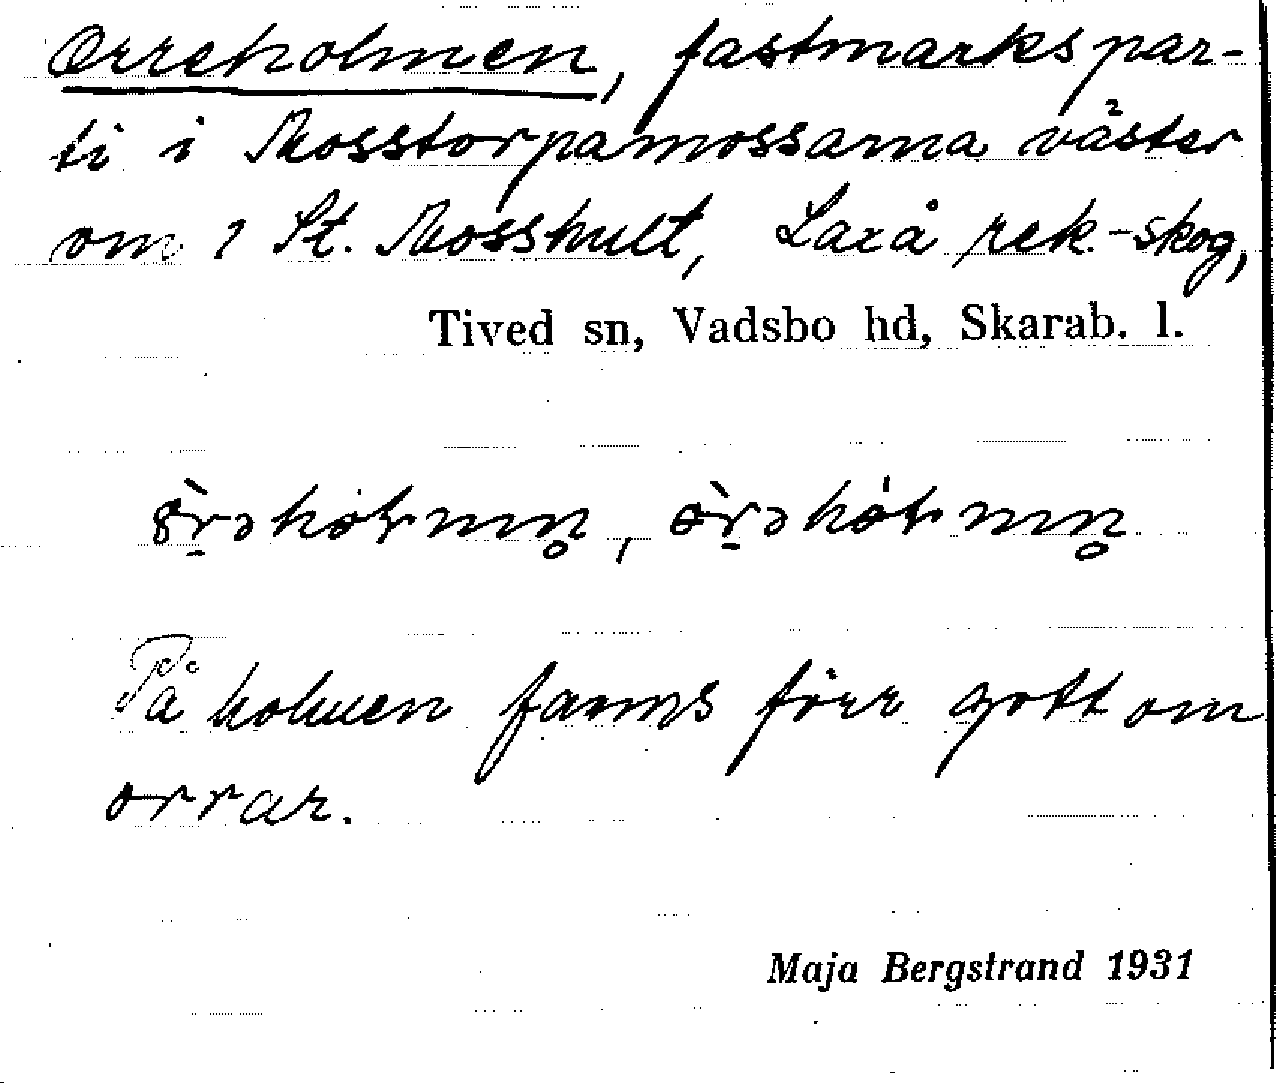 Orreholmen, fastmarkspar-
ti i Mosstorpamossarna väster
om 1 St. Mosshult, Laxå rek.-skog,
Tived sn, Vadsbo hd, Skarab. l.
På holmen fanns förr gott om
orrar.
Maja Bergstrand 1931